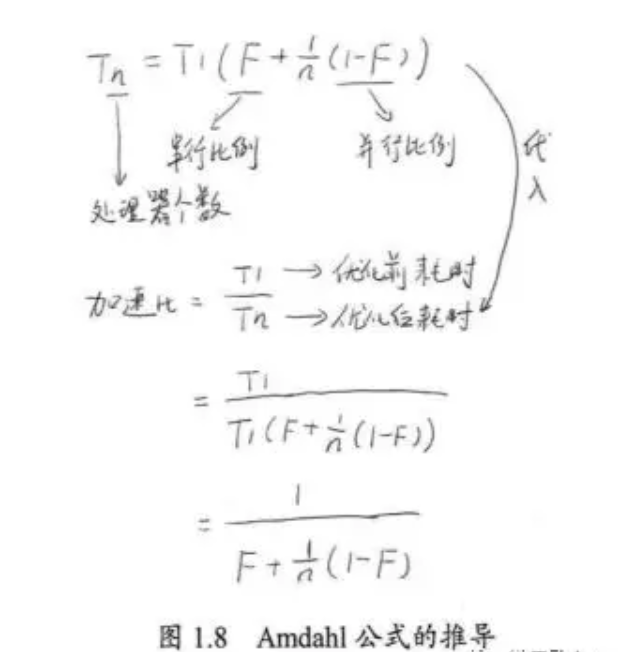 Tn = T1(F + 1/n(1-F))
串行比例 并行比例
处理器个数
代入
加速比 = T1/Tn
T1 → 优化前耗时
Tn → 优化后耗时
= T1 / T1(F + 1/n(1-F))
= 1 / F + 1/n(1-F)
图 1.8 Amdahl 公式的推导